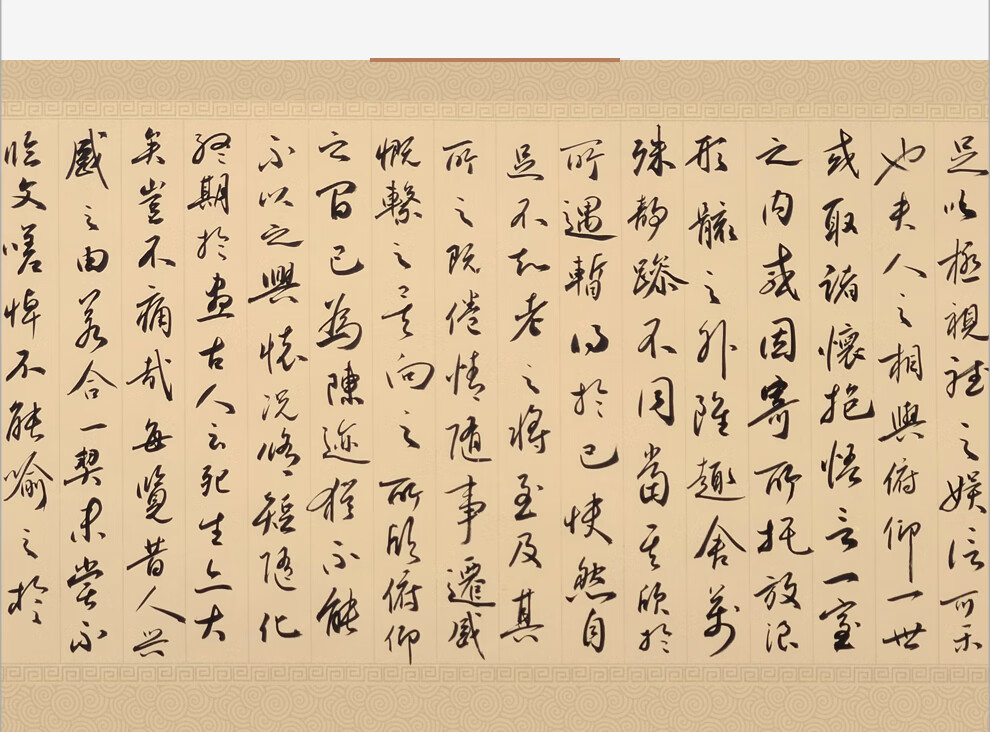 足以極視聽之娛信可樂
也夫人之相與俯仰一世
或取諸懷抱悟言一室
之內或因寄所托放浪
形骸之外雖趣舍萬
殊靜躁不同當其欣於
所遇暫得於己快然自
足不知老之將至及其
所之既倦情隨事遷感
慨繫之矣向之所欣俯仰
之間已為陳迹猶不能
不以之興懷況脩短隨化
終期於盡古人云死生亦大
矣豈不痛哉每覽昔人興
感之由若合一契未嘗不
臨文嗟悼不能喻之於